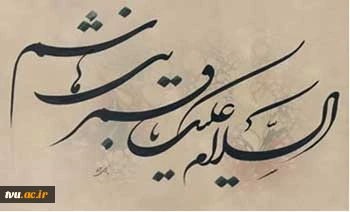 السلام علیک یا قمر بنی هاشم
tvu.ac.ir